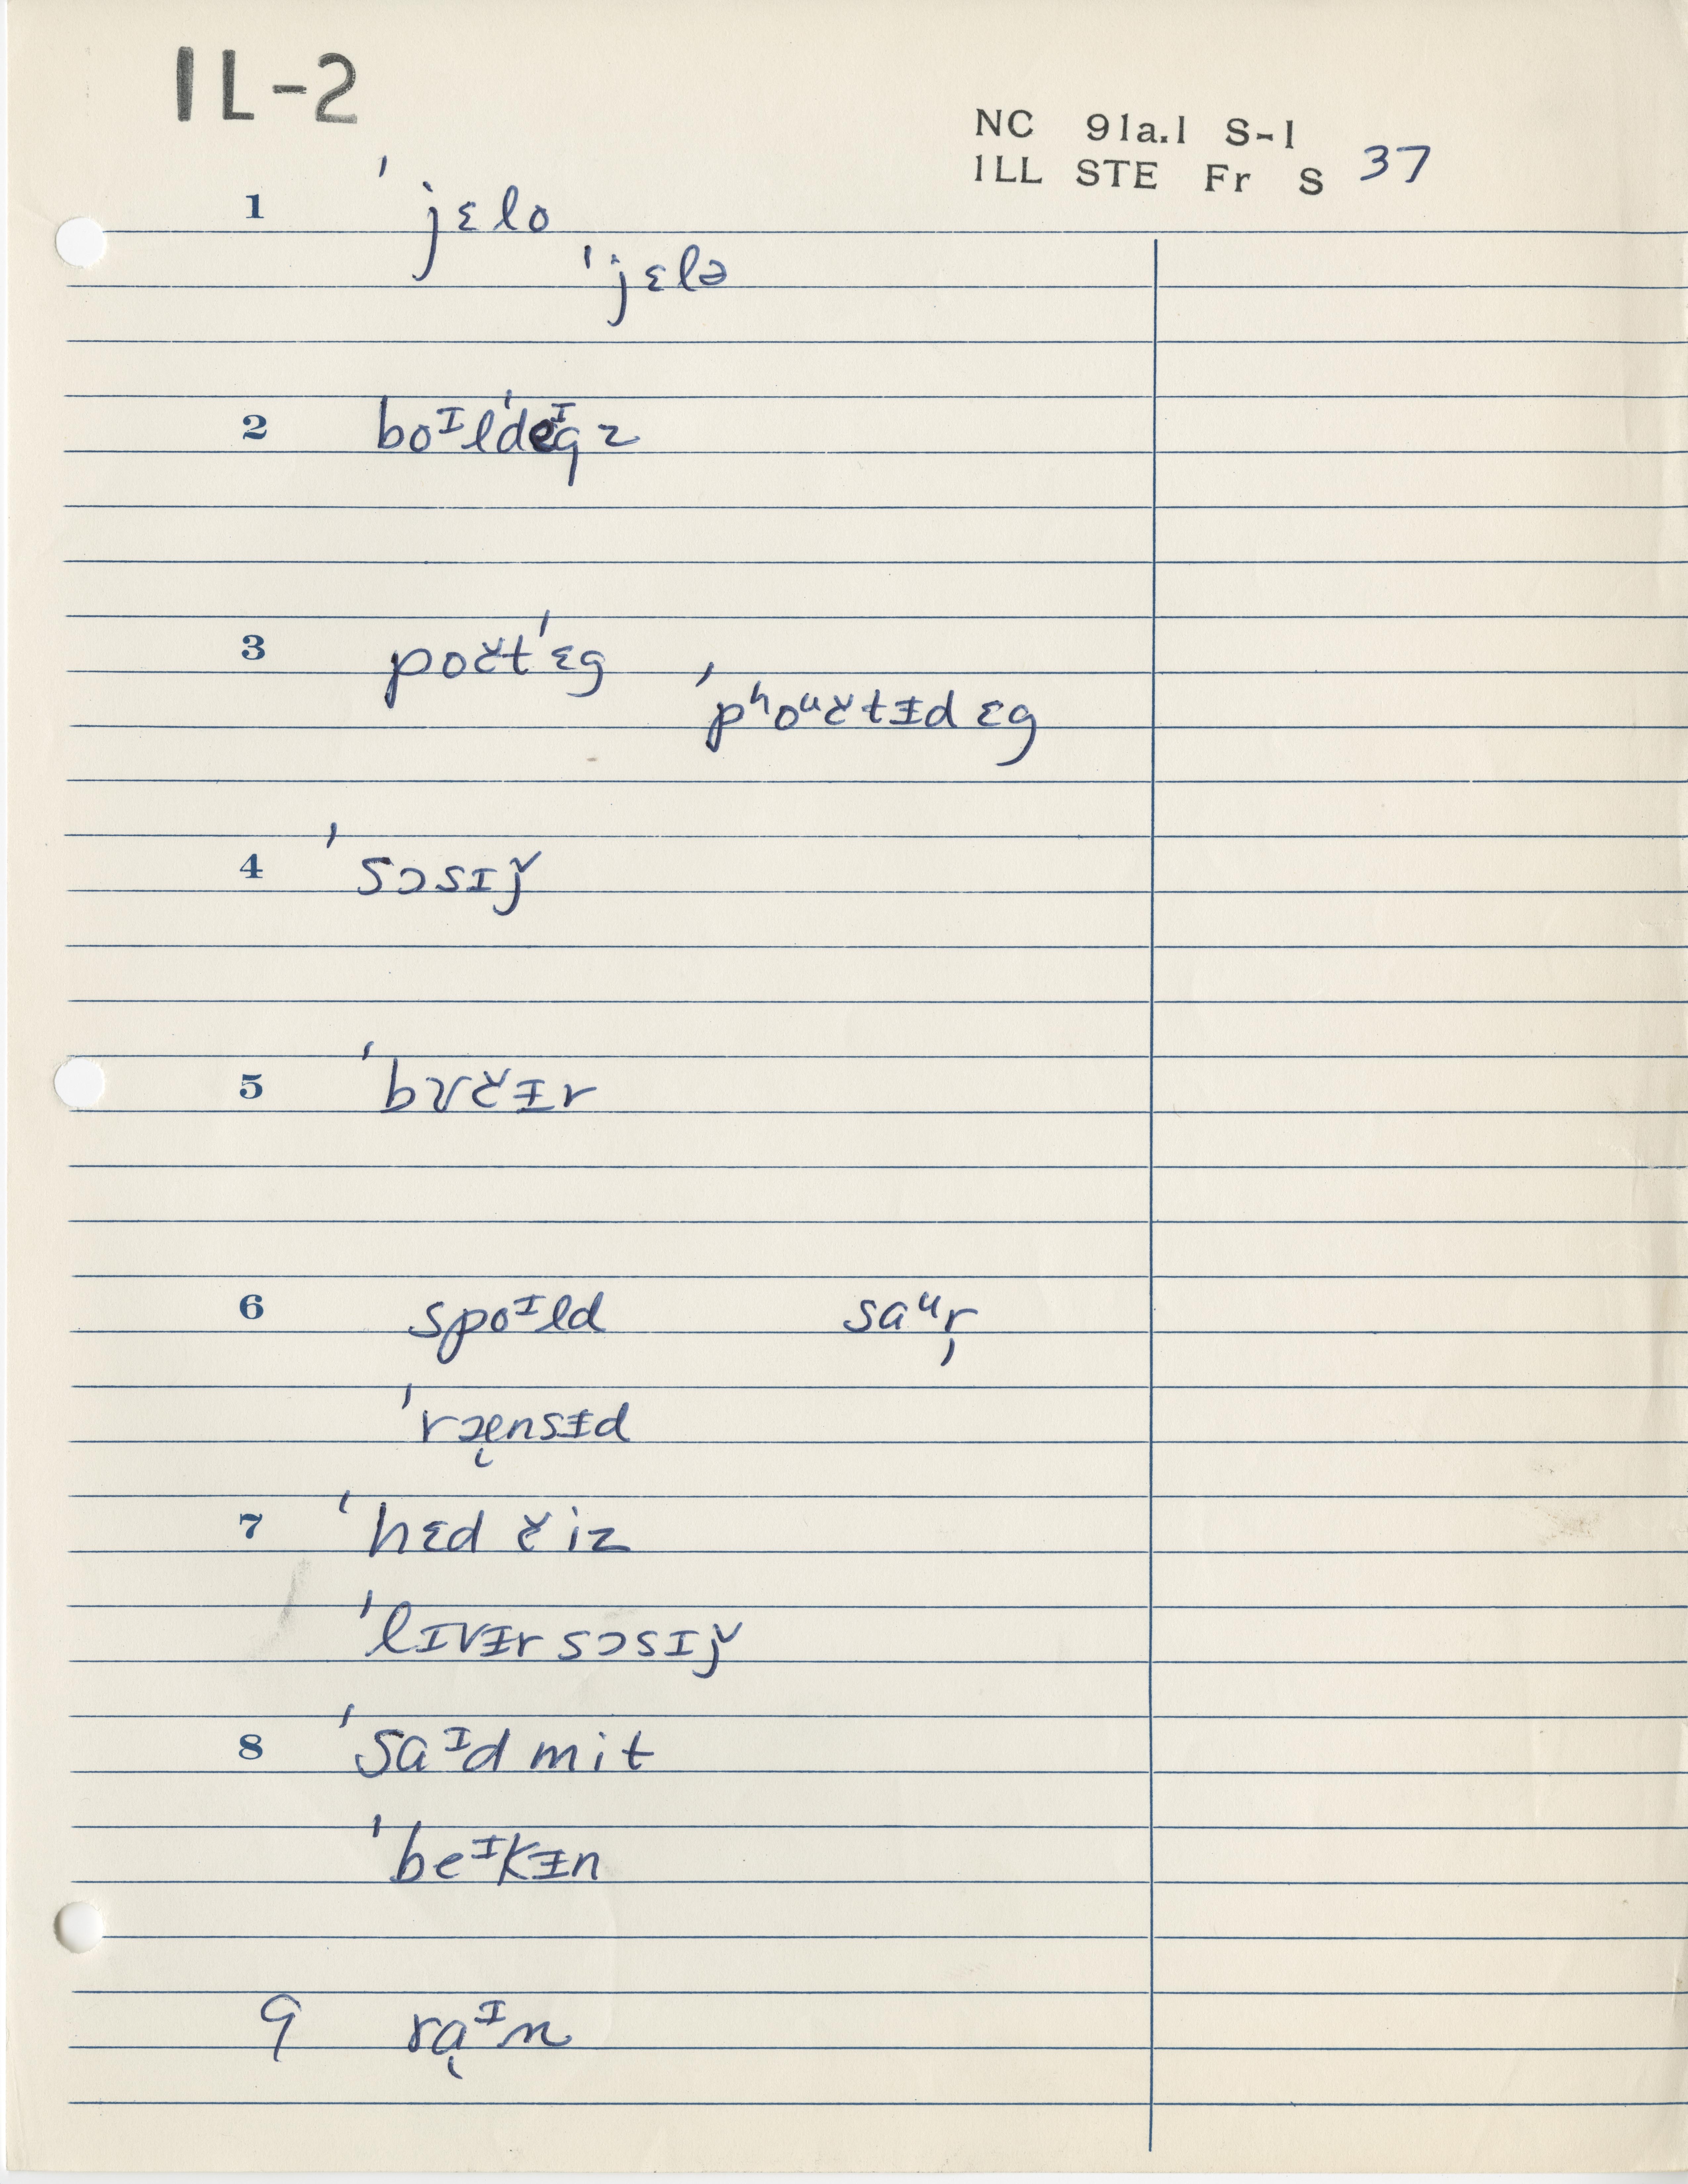 IL-2
NC 91a.1 S-1
ILL STE Fr S 37
1 ˈjɛlo
ˈjɛlə
2 boᴵlˈdeᴵgz
3 počtˈɛg ˈpʰoᵘčtɪ̵d ɛg
4 ˈsɔsɪǰ
5 ˈbʊčɪ̵r
6 spoᴵld saᵘr̩
ˈræ̨nsɪ̵d
7 ˈhɛd čiz
ˈlɪvɪ̵r sɔsɪǰ
8 ˈsaᴵd mit
ˈbeᴵkɪ̵n
9 rąᴵn